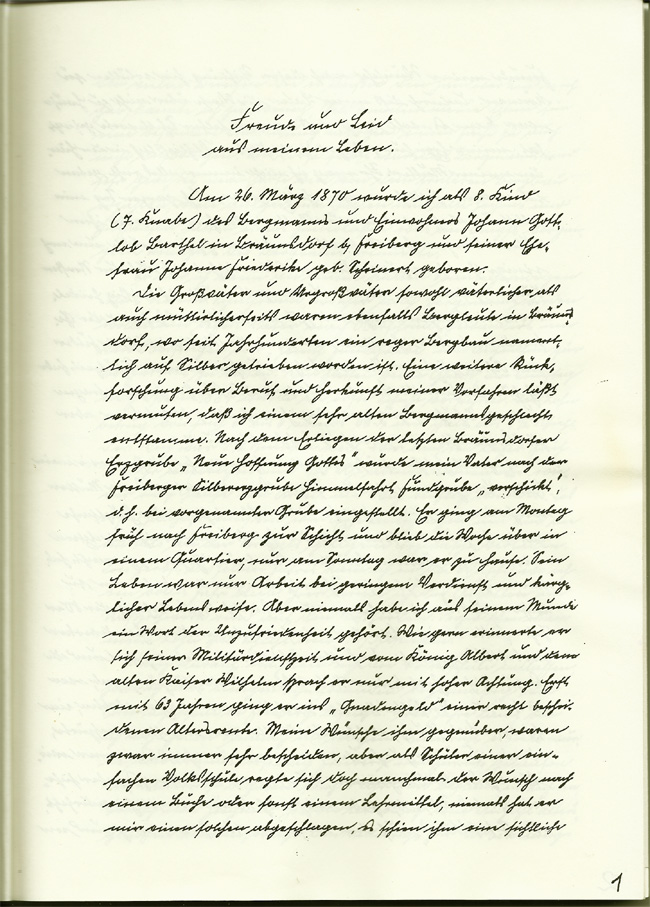 Freude und Leid
aus meinem Leben.
Am 26. März 1870 wurde ich als 8. Kind
(7. Knabe) des Bergmanns und Einwohners Johann Gott-
lob Barthel in Bräunsdorf b/ Freiberg und seiner Ehe-
frau Johanne Friederike geb. Scheinert geboren.
Die Großväter und Urgroßväter sowohl väterlicher als
auch mütterlicherseits waren ebenfalls Bergleute in Bräuns-
dorf, wo seit Jahrhunderten ein reger Bergbau nament-
lich auf Silber getrieben worden ist. Eine weitere Rück-
forschung über Beruf und Herkunft meiner Vorfahren läßt
vermuten, daß ich einem sehr alten Bergmannsgeschlecht
entstamme. Nach dem Erliegen der letzten Bräunsdorfer
Erzgrube „Neue Hoffnung Gottes" wurde mein Vater nach der
Freiberger Silbererzgrube Himmelfahrt Fundgrube „verschickt",
d.h. bei vorgenannter Grube eingestellt. Er ging am Montag
früh nach Freiberg zur Schicht und blieb die Woche über in
einem Quartier, nur am Sonntag war er zu Hause. Sein
Leben war nur Arbeit bei geringem Verdienst und kärg-
licher Lebensweise. Aber niemals habe ich aus seinem Munde
ein Wort der Unzufriedenheit gehört. Wie gern erinnerte er
sich seiner Militärdienstzeit und vom König Albert und dem
alten Kaiser Wilhelm sprach er nur mit hoher Achtung. Erst
mit 63 Jahren ging er ins „Gnadengeld" einer recht beschei-
denen Altersrente. Meine Wünsche ihm gegenüber, waren
zwar immer sehr bescheiden, aber als Schüler einer ein-
fachen Volksschule regte sich doch manchmal der Wunsch nach
einem Buche oder sonst einem Lehrmittel, niemals hat er
mir einen solchen abgeschlagen, es schien ihm eine sichtliche
1